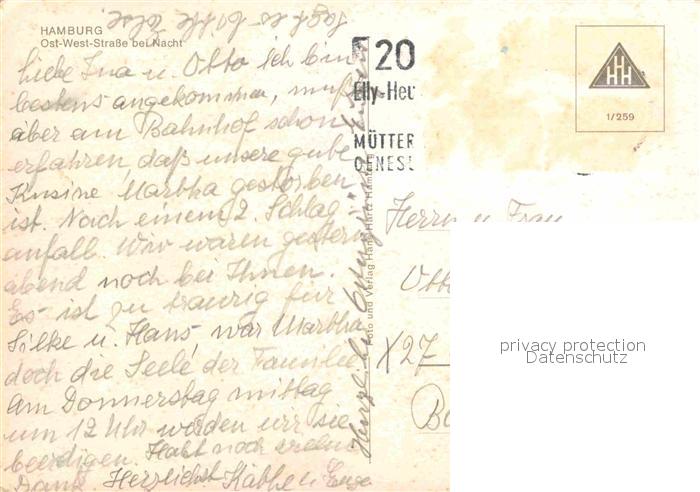 HAMBURG
Ost-West-Straße bei Nacht
Liebe Ina u. Otto ich bin
bestens angekommen, mußte
aber am Bahnhof schon
erfahren daß unsere gute
Kusine Martha gestorben
ist. Nach einem 2. Schlag-
anfall. Wir waren gestern
abend noch bei Ihnen.
Es ist zu traurig für
Silke u. Hans, war Martha
doch die Seele der Familie
Am Donnerstag mittag
um 12 Uhr werden wir sie
beerdigen. Habt noch vielen
Dank. Herzlichst Käthe u.
Herzliche
Foto und Verlag Hans Hartz Hamburg
20
Elly-Heu
MÜTTER
GENES
HHH
1/259
Herrn u. Frau
Otto
X27
privacy protection
Datenschutz